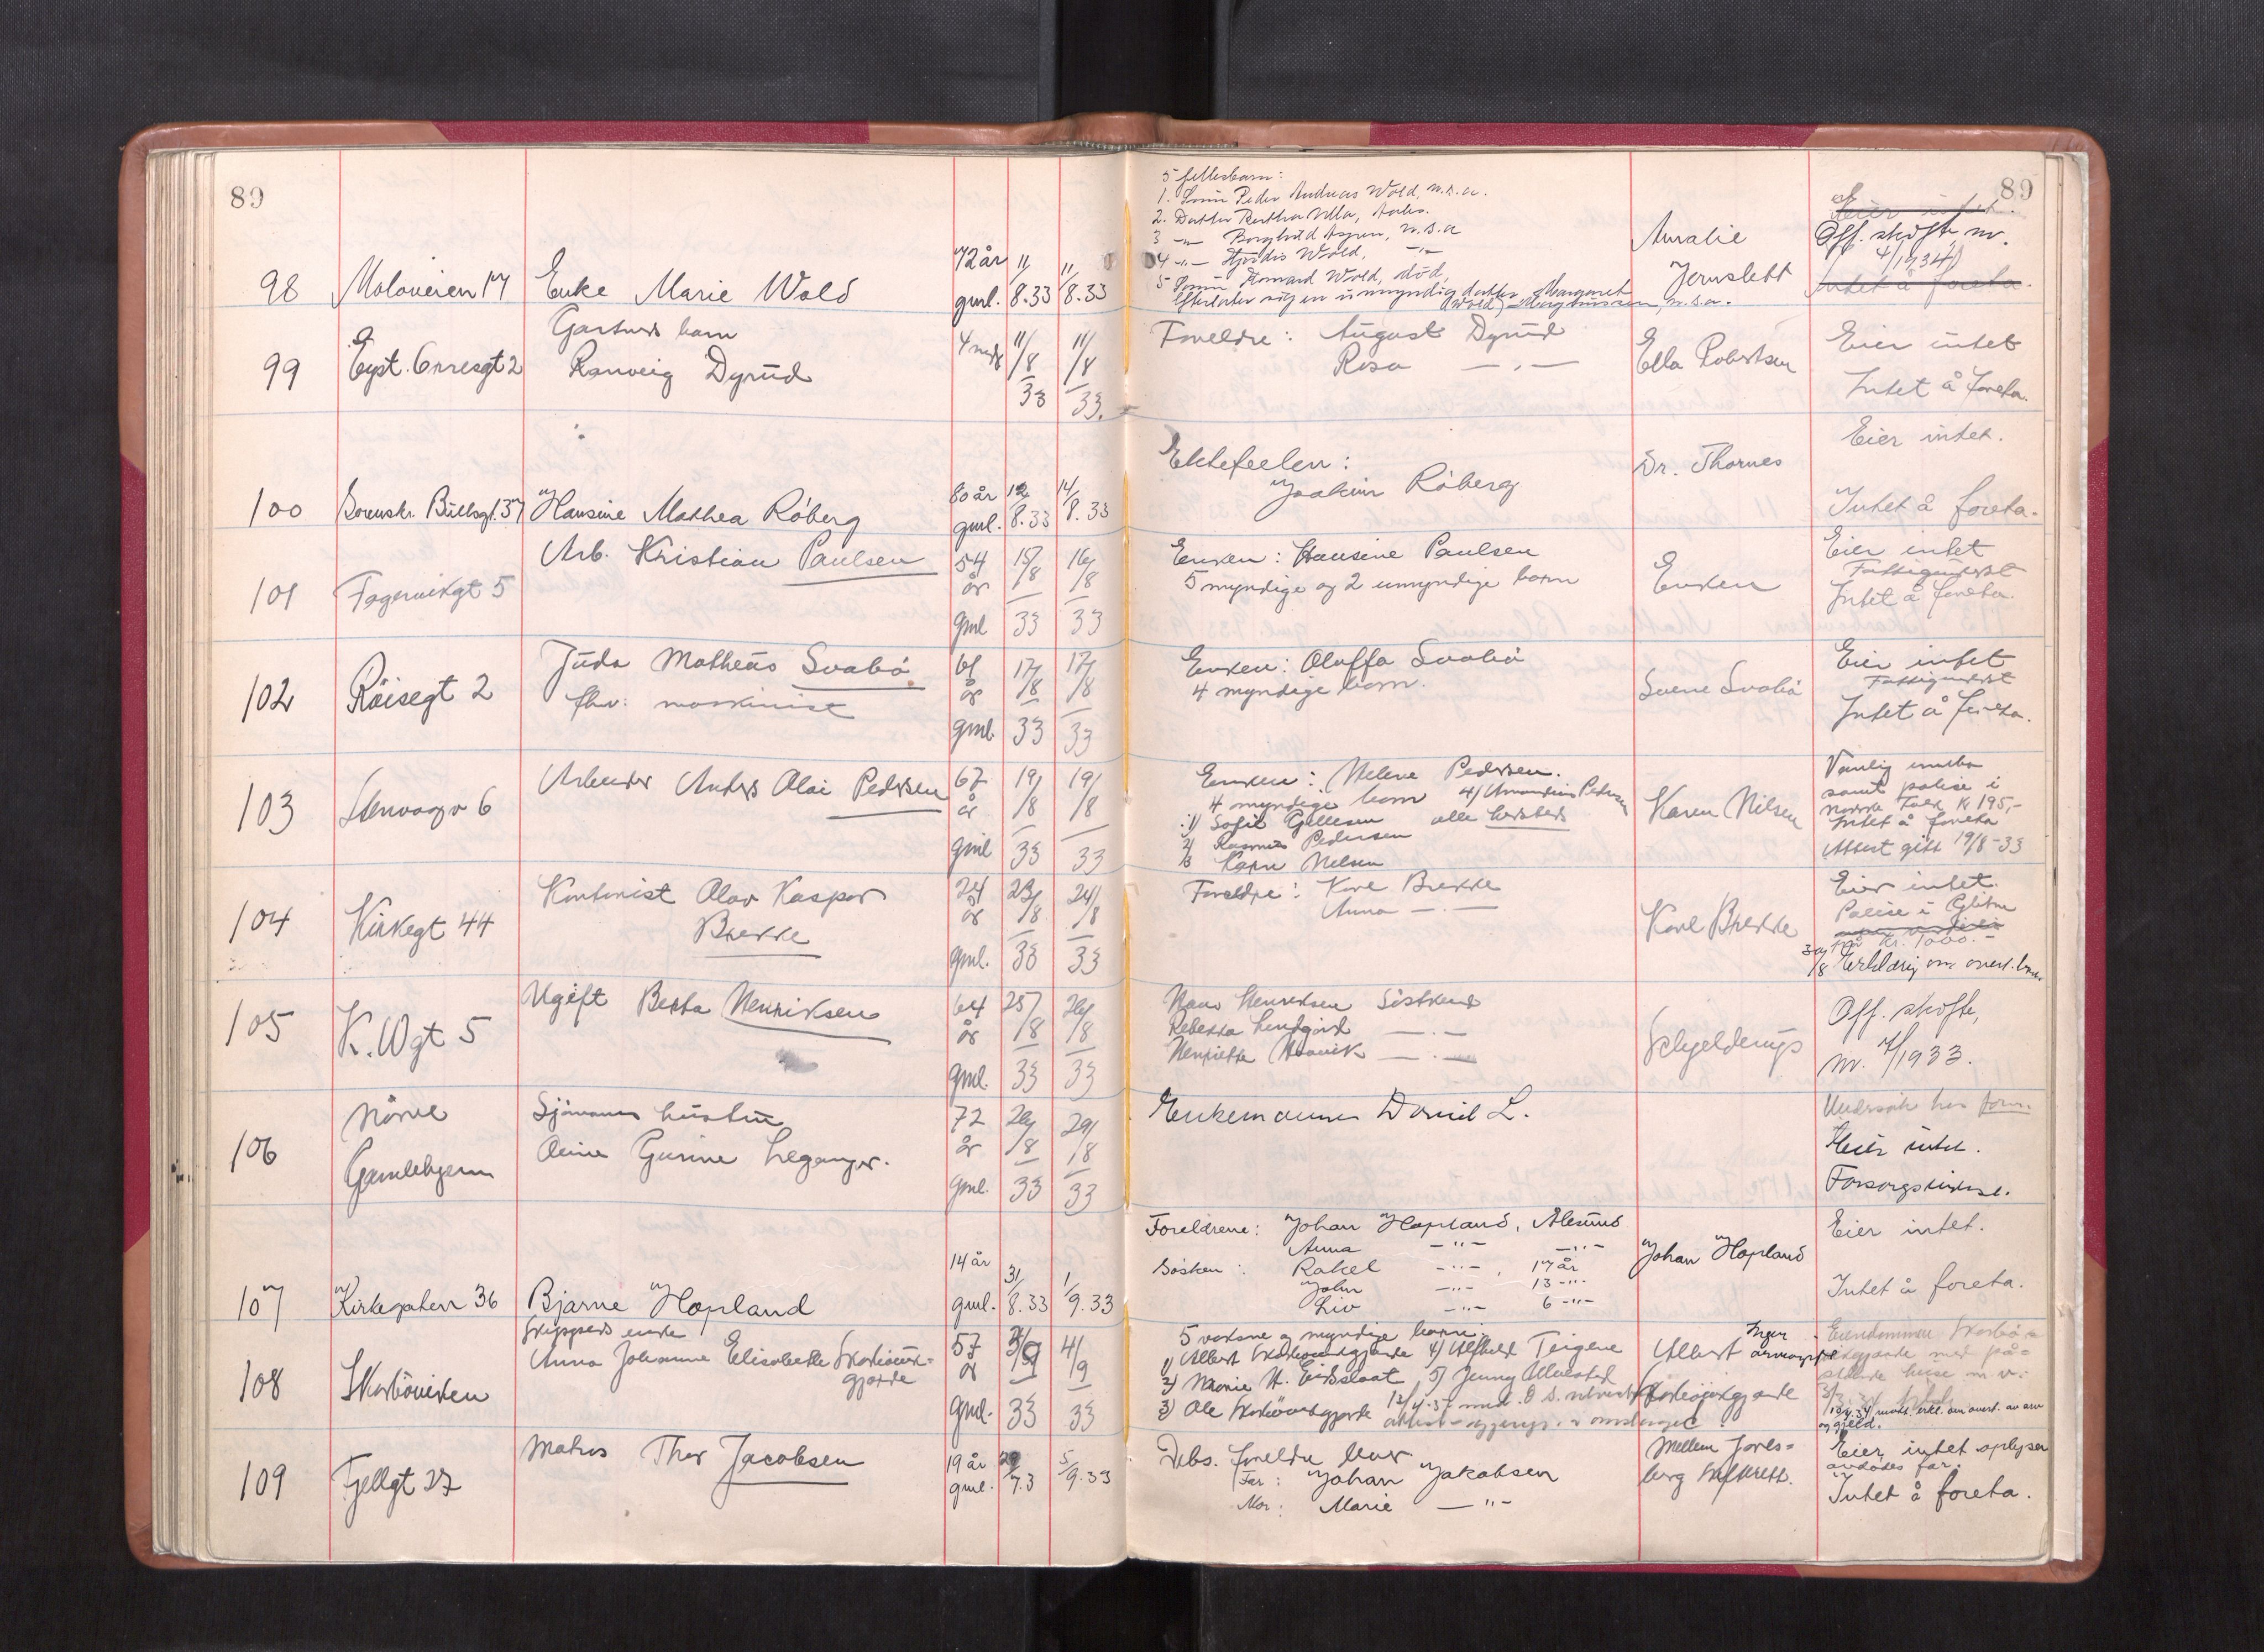 89
89
98 Moloveien 17 Enke Marie Wold 72 år gml. 11/8.33 11/8.33
5 fellesbarn:
1. Sønn Peder Andreas Wold, m.s.a.
2. Datter Bertha Ulla, Aales.
3 -"- Borghild Aspen, m.s.a
4 -"- Hjørdis Wold, -"-
5 Sønn Wold, død,
Efterlater sig en umyndig datter Margaret
(Wold) m.s.a.
Amalie
Jernslett
Eier intet.
Off. skifte nr.
4/1934
Intet å foreta.
99 Eyst. Orresgt 2 Gartners barn
Ranveig Dyrud 4 mndr 11/8 33 11/8 33.
Foreldre: August Dyrud
Rosa -"-
Ella Robertsen
Eier intet
Intet å foreta.
100 Sorenskr. Bullsgt. 37 Hansine Mathea Röberg 80 år gml. 12/8.33 14/8.33
Ektefeelen:
Joakim Röberg
Dr. Thornes
Eier intet.
Intet å foreta.
101 Fagervikgt 5 Arb. Kristian Paulsen 54 år gml 15/8 33 16/8 33
Enken: Hansine Paulsen
5 myndige og 2 umyndige barn
Enken
Eier intet
Fattigunderst
Intet å foreta.
102 Röisegt 2 Juda Matheus Svabö
fhv: maskinist 61 år gml. 17/8 33 17/8 33
Enken: Oluffa Svabö
4 myndige barn.
Svene Svabö
Eier intet
Fattigunderst
Intet å foreta.
103 Stenvaagv 6 Arbeider Anders Olai Pedersen 67 år gml 19/8 33 19/8 33
Enken: Helene Pedersen.
4 myndige barn 4/ Amandius Pedersen
1/ Sofie Gillesen alle hersteds
2/ Rasmus Pedersen
3/ Karen Nilsen
Karen Nilsen
Vanlig innbo
samt polise i
Norske Folk kr 195,-
Intet å foreta
Attest gitt 19/8-33
104 Kirkegt 44 Kontorist Olav Kaspar
Brekke 24 år gml. 23/8 33 24/8 33
Foreldre: Karl Brekke
Anna -"-
Karl Brekke
Eier intet.
Polise i Glitne
på kr. 1000.-
30/8 Erklæring om overt.
105 K. Wgt 5 Ugift Berta Henriksen 64 år gml. 25/8 33 26/8 33
Hans Henriksen Söskend
Rebekka Lundgård -"-
Henriette -"-
Schjelderups
Off. skifte,
nr. 7/1933.
106 Nörve
Gamlehjem Sjömanns hustru
Oline Gurine Leganger. 72 år gml. 26/8 33 29/8 33
Enkemannen Daniel L.
Undersök hos form.
Eier intet.
Forsorgsunderst.
107 Kirkegaten 36 Bjarne Hopland 14 år gml. 31/8.33 1/9.33
Foreldrene: Johan Hopland, Ålesund
Anna -"- -"-
Søsken: Rakel -"-, 17 år
John -"- 13 -"-
Liv -"- 6 -"-
Johan Hopland
Eier intet.
Intet å foreta.
108 Skarböviken Skippers enke
Anna Johanne Elisabethe Skarbövik-
gjerde 57 år gml. 3/9 33 4/9 33
5 voksne og myndige barn:
1/ Albert Skarbövikgjerde 4/ Alfhild Teigene
2/ Marie H. Eidslaat 5/ Jenny
3/ Ole Skarbövikgjerde
Albert
Skarbövikgjerde
Ingen
Eiendommen Skarbö-
vikgjerde med på-
stående huse m.v.
19/4.34 mott. erkl. om overt. av arv
og gjeld.
109 Fjellgt 27 Matros Thor Jacobsen 19 år gml. 7.3 5/9.33
Debs. foreldre lever
Far: Johan Jakobsen
Mor: Marie -"-
Mellem Jarls-
berg
Eier intet oplyser
avdödes far.
Intet å foreta.